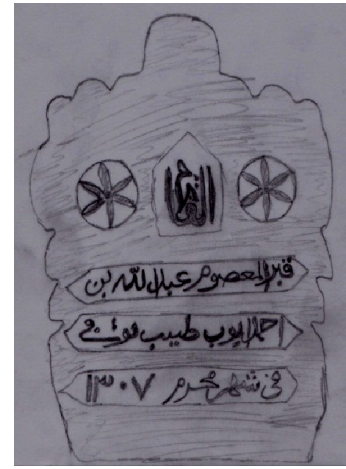 قبر المعصوم عبد الله بن
احمد ايوب طبيب
في شهر محرم ١٣٠٧